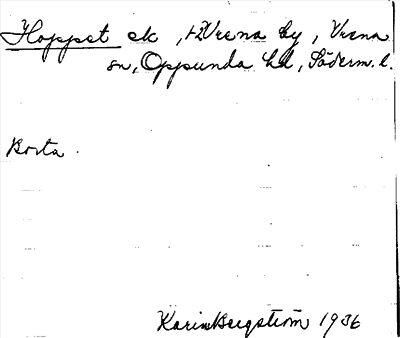 Hoppet ek, i Vrena by, Vrena
sn, Oppunda hd, Söderm. l.
Borta.
Karin Bergström 1936